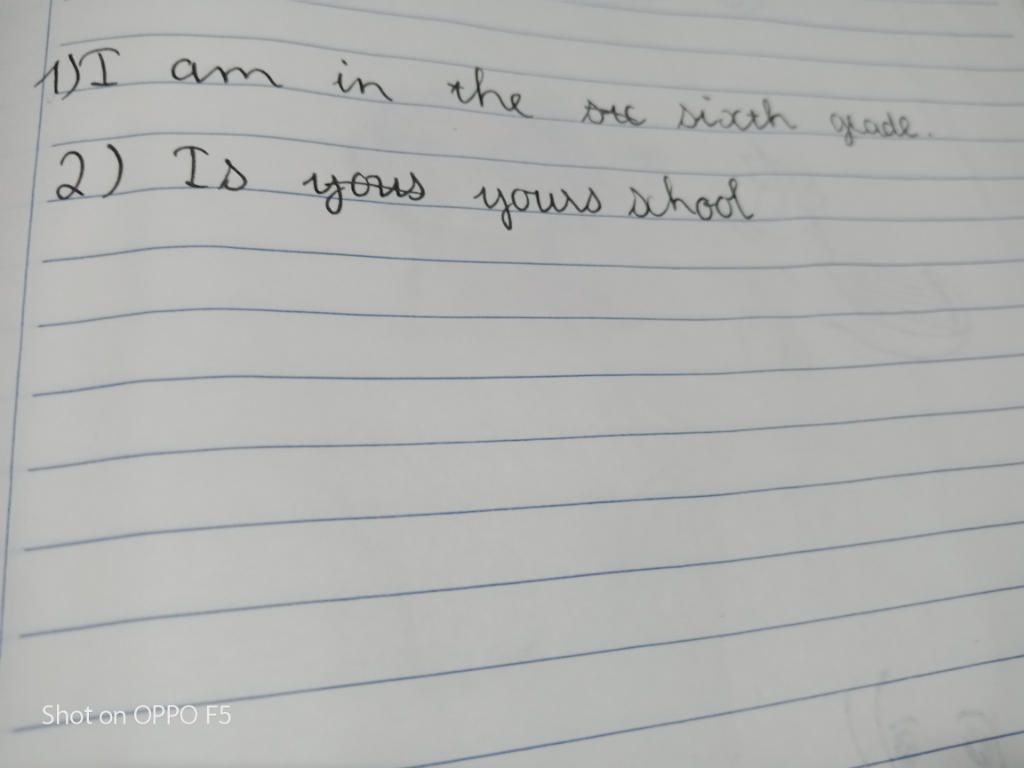 1) I am in the sixth grade.
2) Is yours school
Shot on OPPO F5